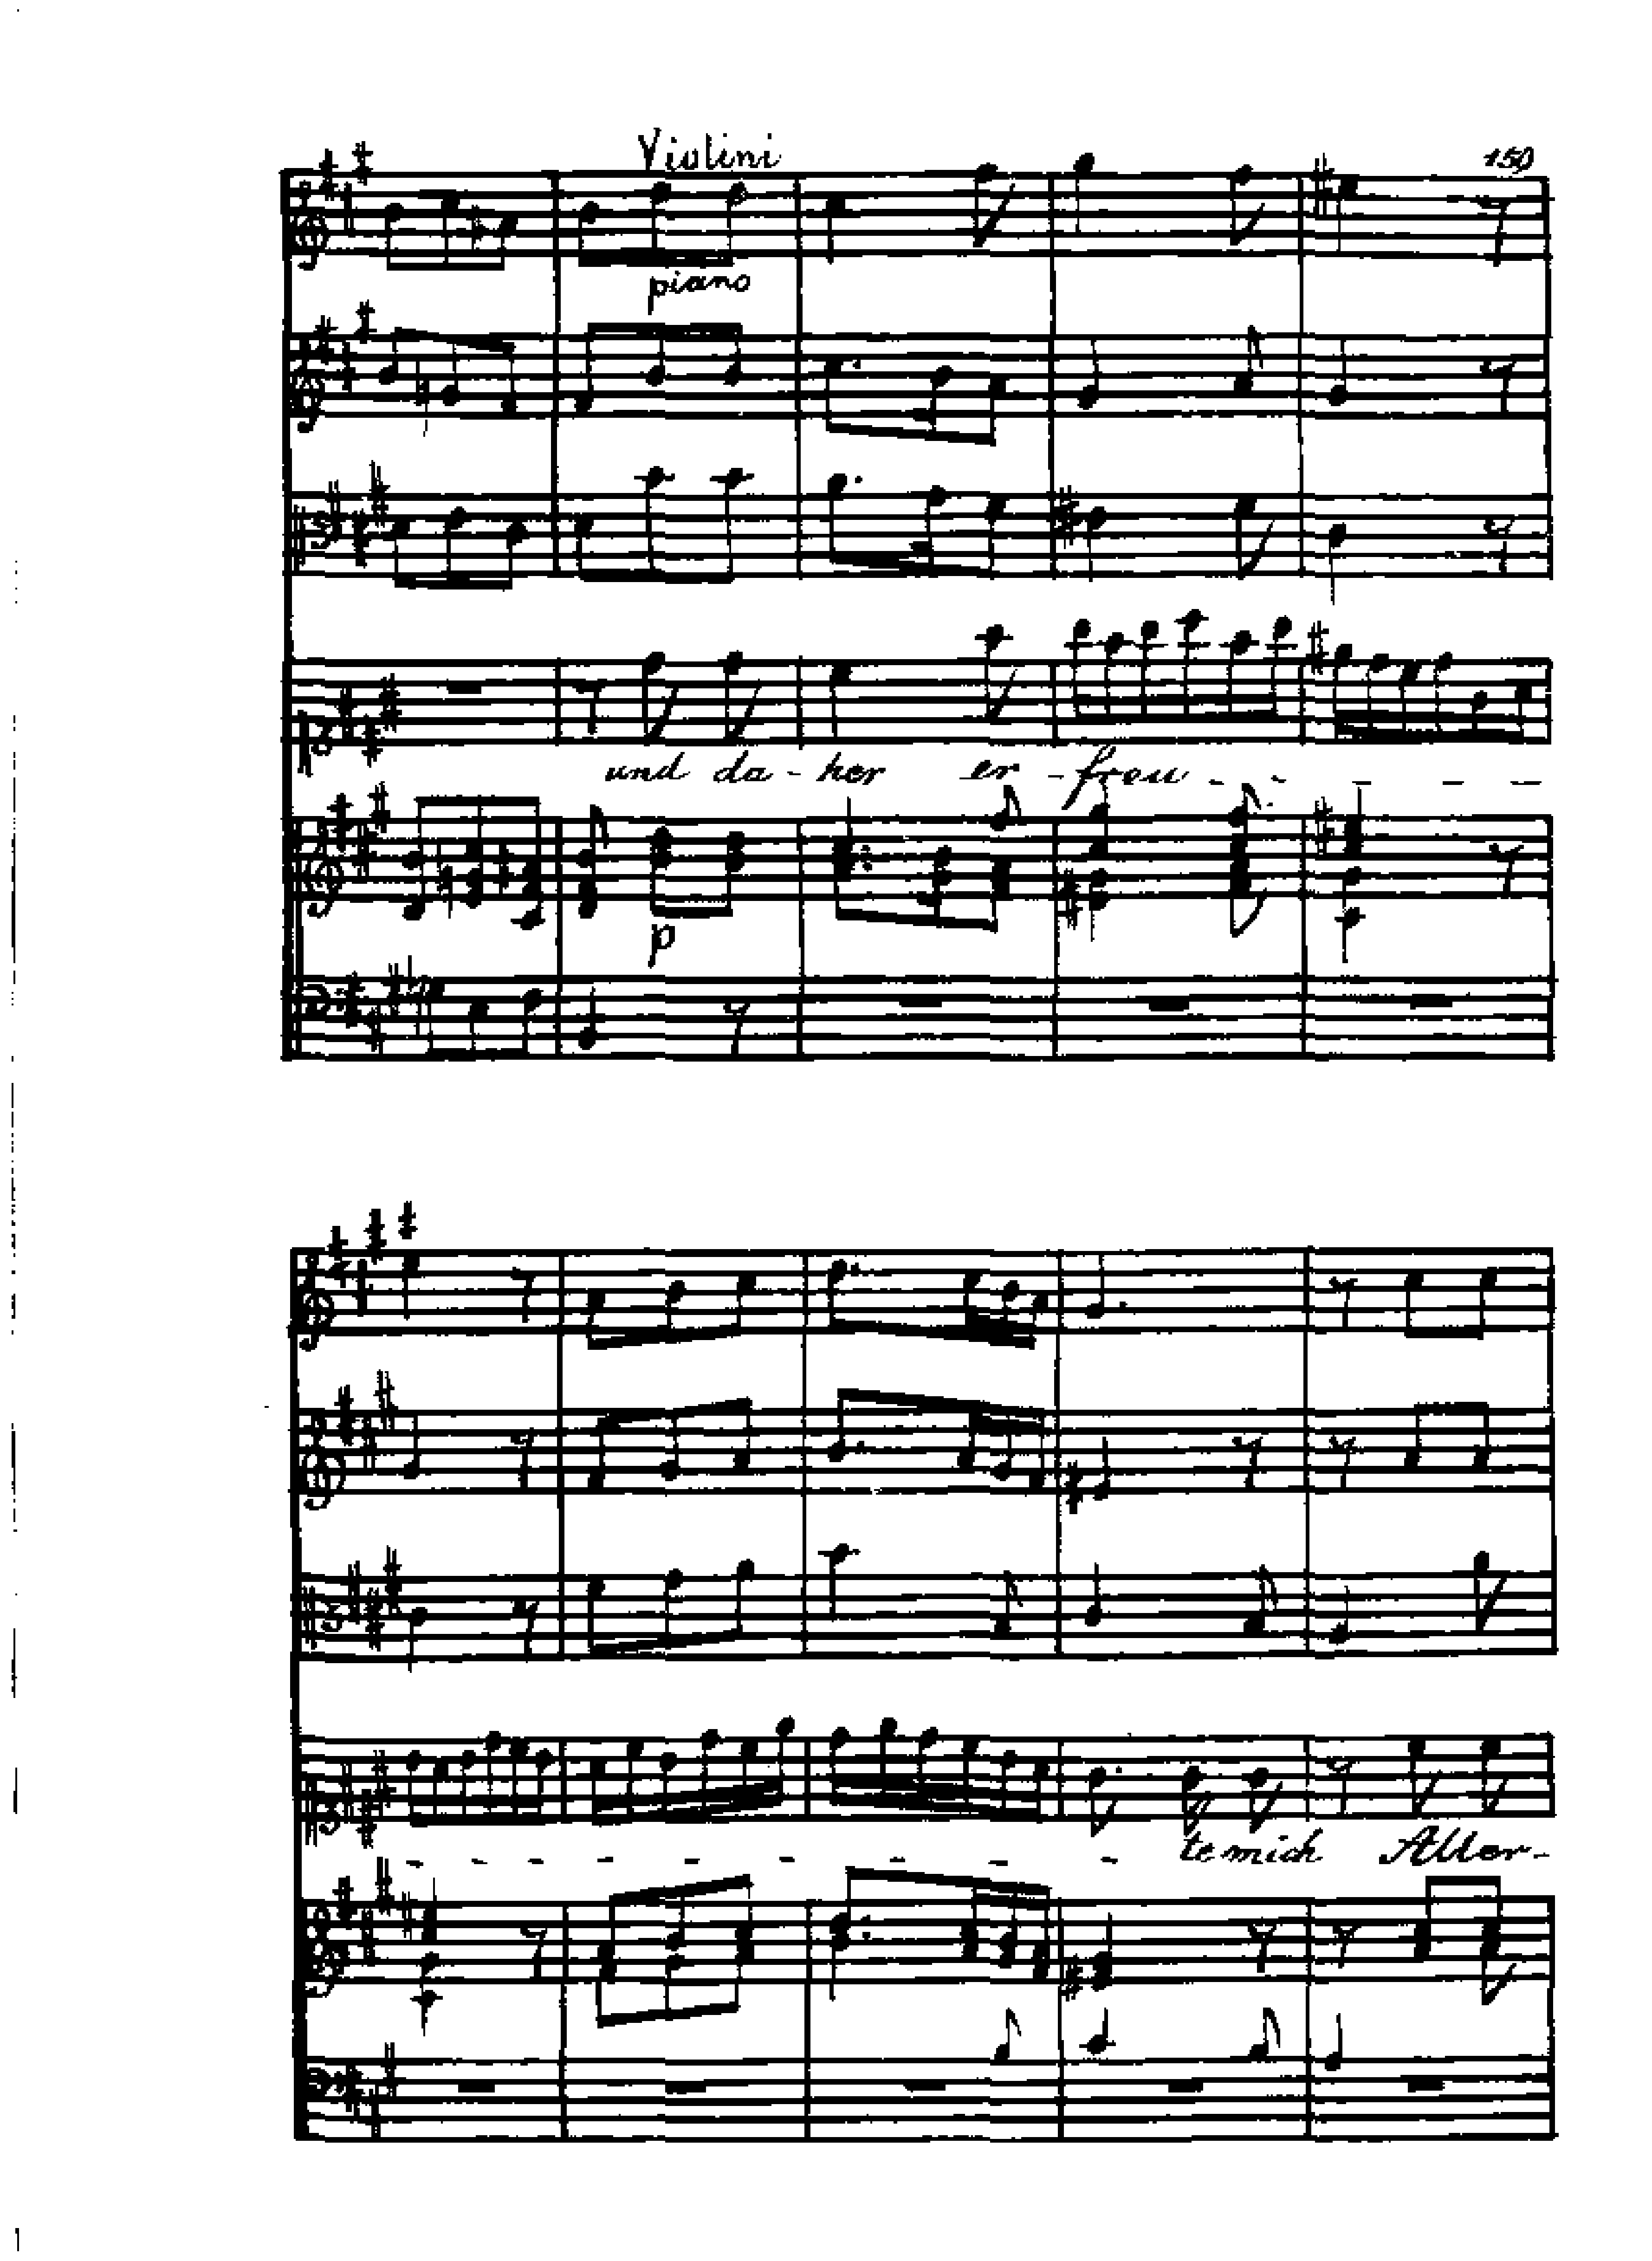 Violini
150
piano
und da - her er - freu - - - - -
p
- - - - - - - - - te mich Aller -